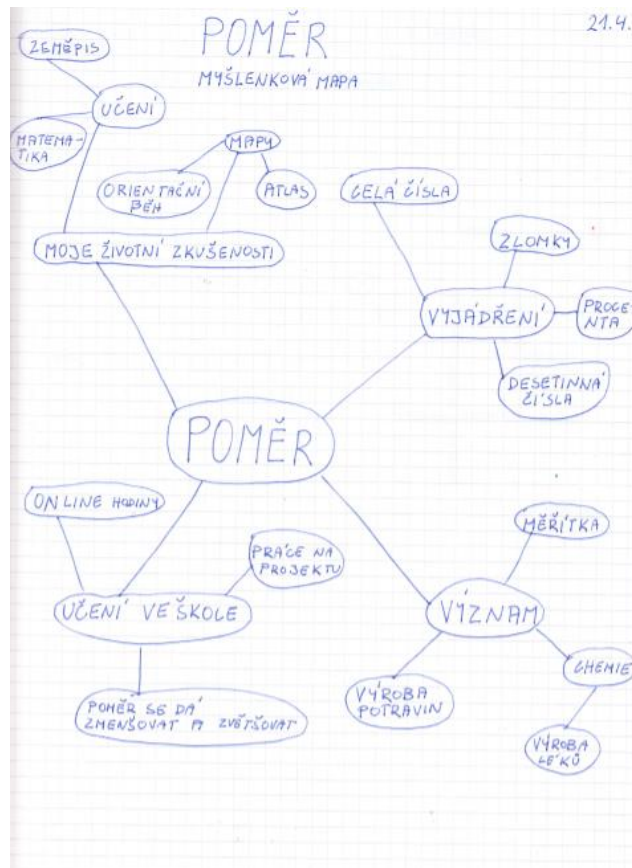 POMĚR
21.4.
MYŠLENKOVÁ MAPA
ZEMĚPIS
UČENÍ
MATEMA-
TIKA
MAPY
ORIENTAČNÍ
BĚH
ATLAS
MOJE ŽIVOTNÍ ZKUŠENOSTI
CELÁ ČÍSLA
ZLOMKY
VYJÁDŘENÍ
PROCE-
NTA
DESETINNÁ
ČÍSLA
POMĚR
ONLINE HODINY
PRÁCE NA
PROJEKTU
UČENÍ VE ŠKOLE
POMĚR SE DÁ
ZMENŠOVAT A ZVĚTŠOVAT
MĚŘÍTKA
VÝZNAM
CHEMIE
VÝROBA
POTRAVIN
VÝROBA
LÉKŮ